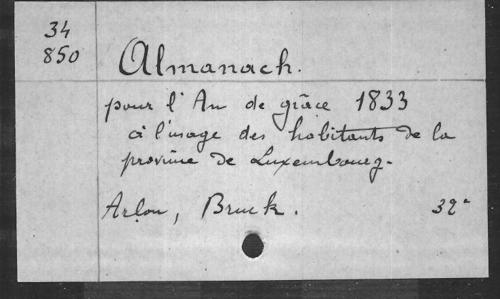 34
850
Almanach.
pour l'An de grâce 1833
à l'usage des habitants de la
province de Luxembourg.
Arlon, Bruck. 32°